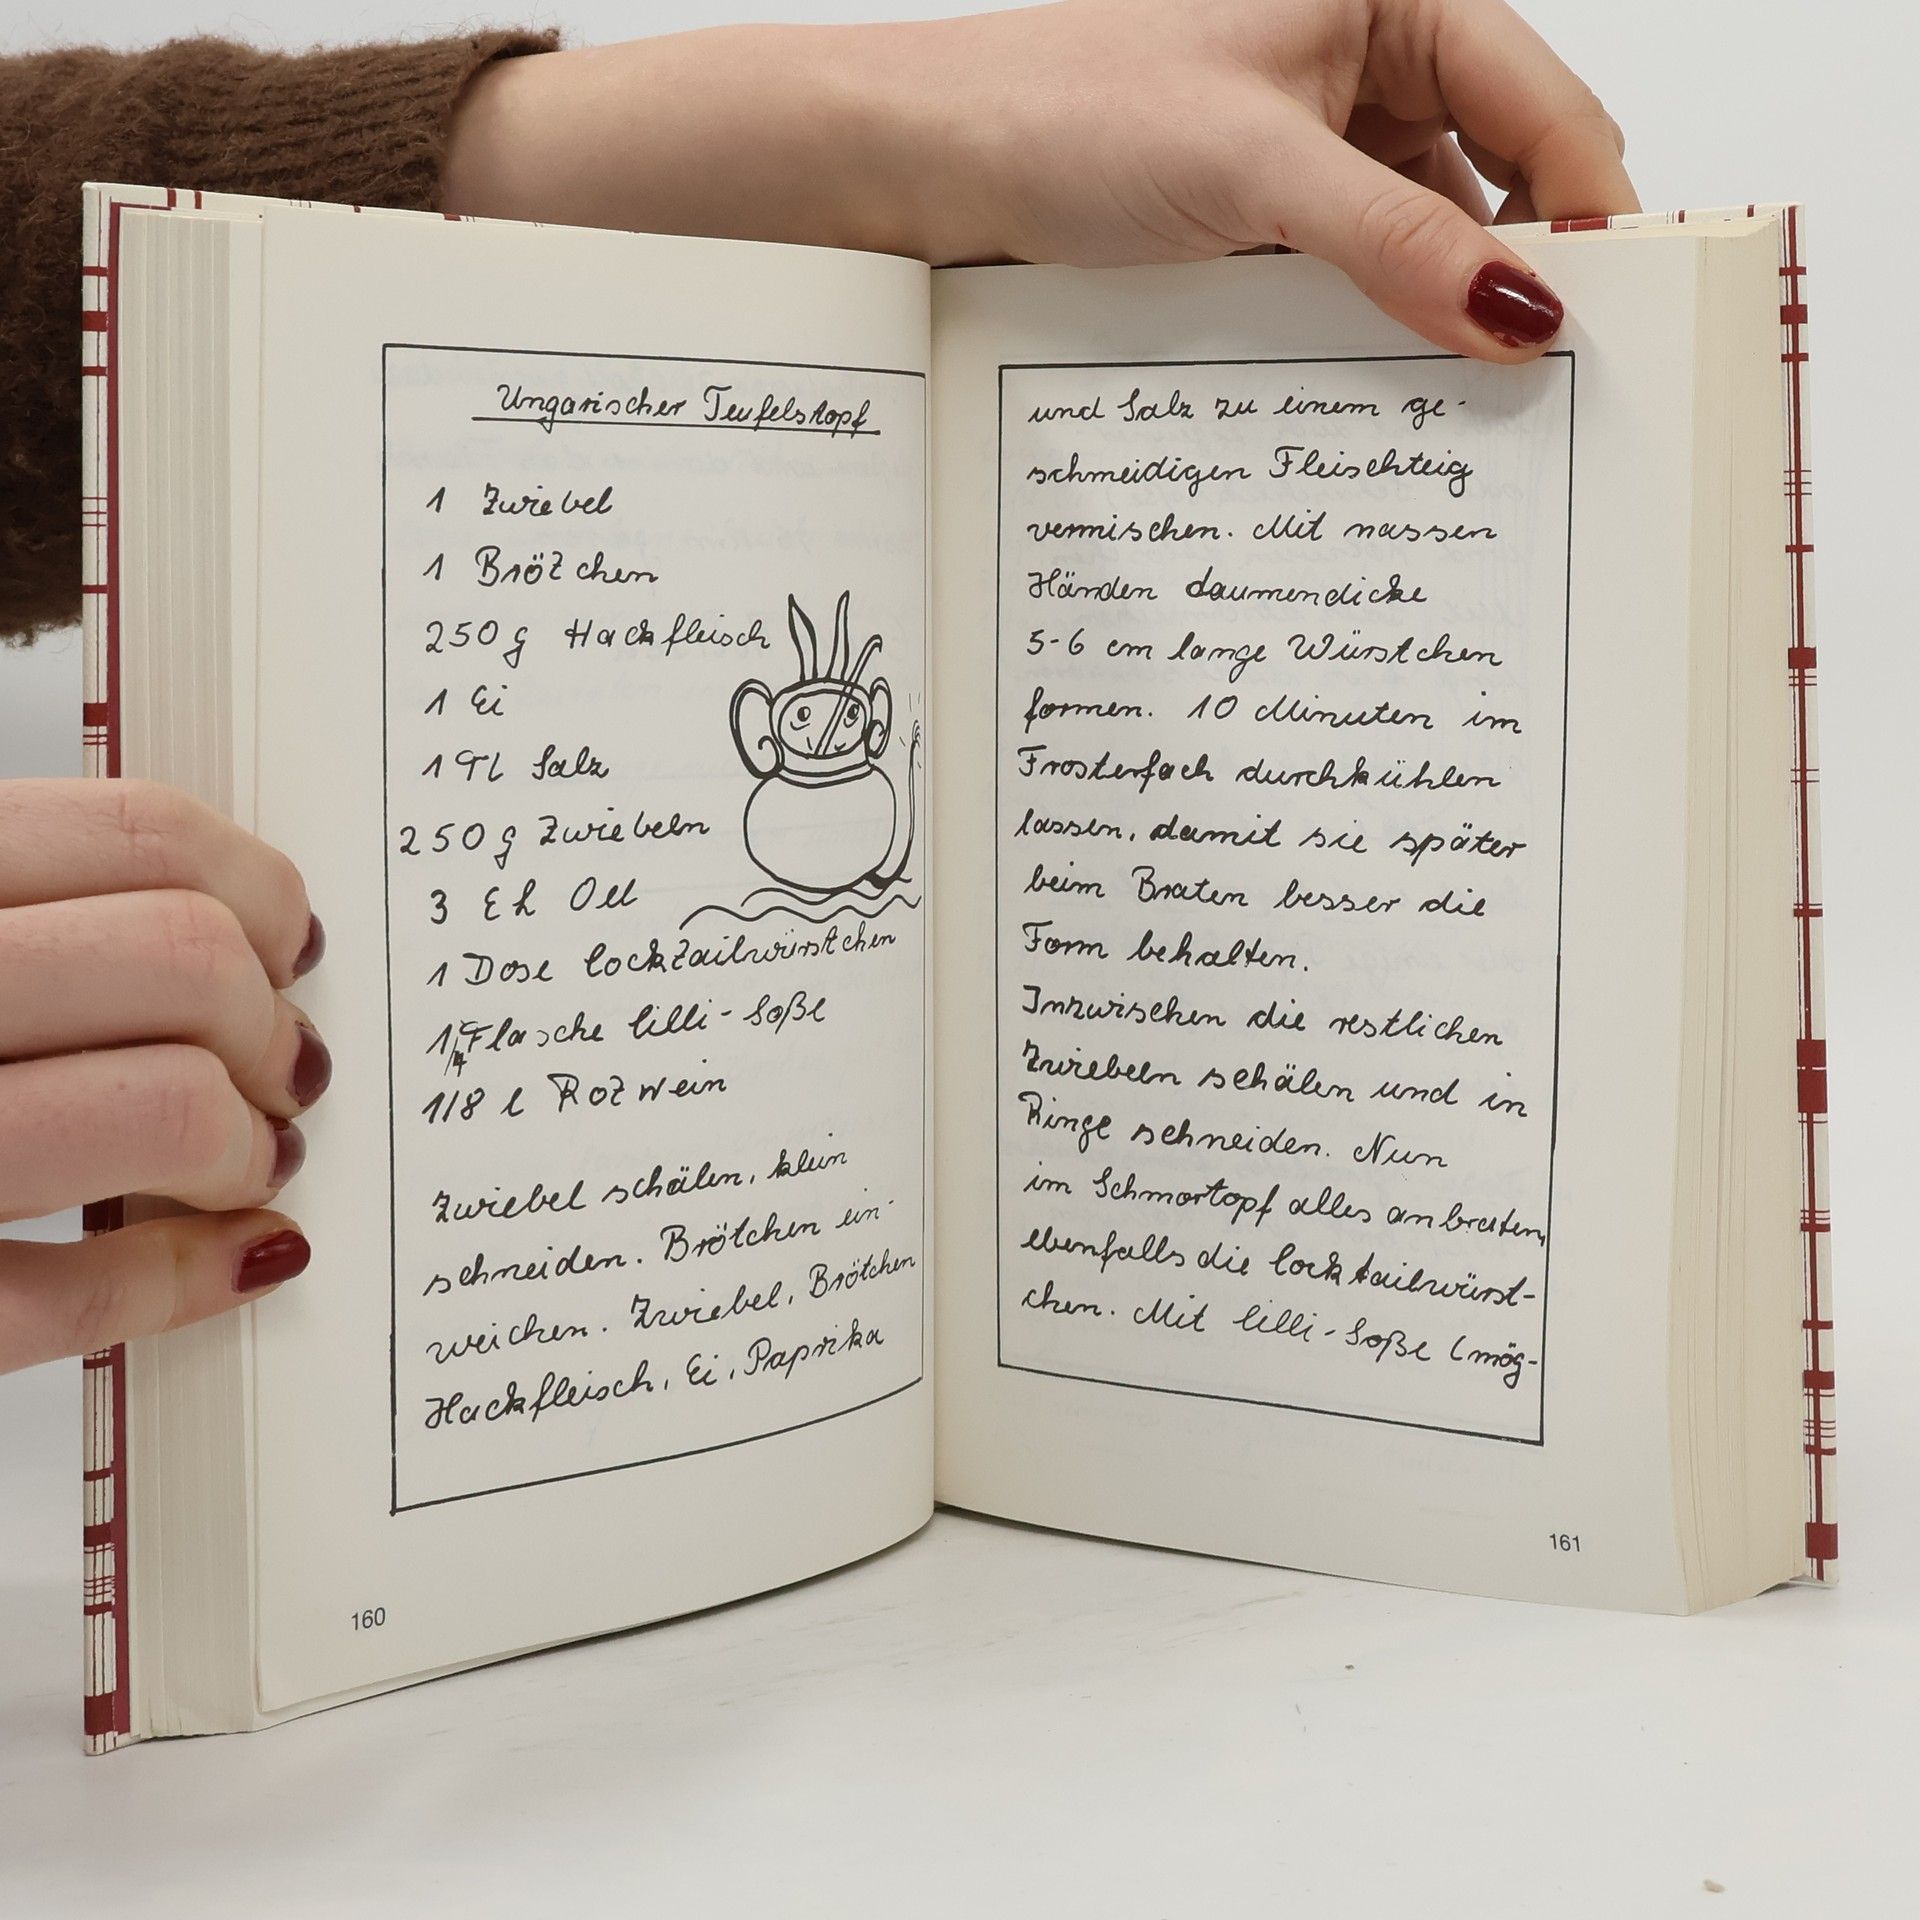 Ungarischer Teufelstopf
1 Zwiebel
1 Brötchen
250 g Hackfleisch
1 Ei
1 Tl Salz
250 g Zwiebeln
3 El Oel
1 Dose Cocktailwürstchen
1/4 Flasche Cilli-Soße
1/8 l Rotwein
Zwiebel schälen, klein
schneiden. Brötchen ein-
weichen. Zwiebel, Brötchen
Hackfleisch, Ei, Paprika
160
und Salz zu einem ge-
schmeidigen Fleischteig
vermischen. Mit nassen
Händen daumendicke
5-6 cm lange Würstchen
formen. 10 Minuten im
Frosterfach durchkühlen
lassen, damit sie später
beim Braten besser die
Form behalten.
Inzwischen die restlichen
Zwiebeln schälen und in
Ringe schneiden. Nun
im Schmortopf alles anbraten,
ebenfalls die Cocktailwürst-
chen. Mit Cilli-Soße (mög-
161